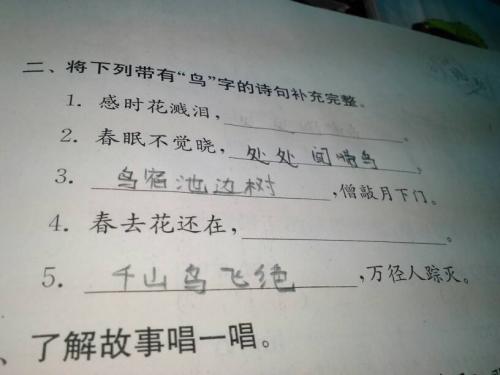 二、将下列带有“鸟”字的诗句补充完整。
1. 感时花溅泪，。
2. 春眠不觉晓，处处闻啼鸟。
3. 鸟宿池边树，僧敲月下门。
4. 春去花还在，。
5. 千山鸟飞绝，万径人踪灭。
、了解故事唱一唱。